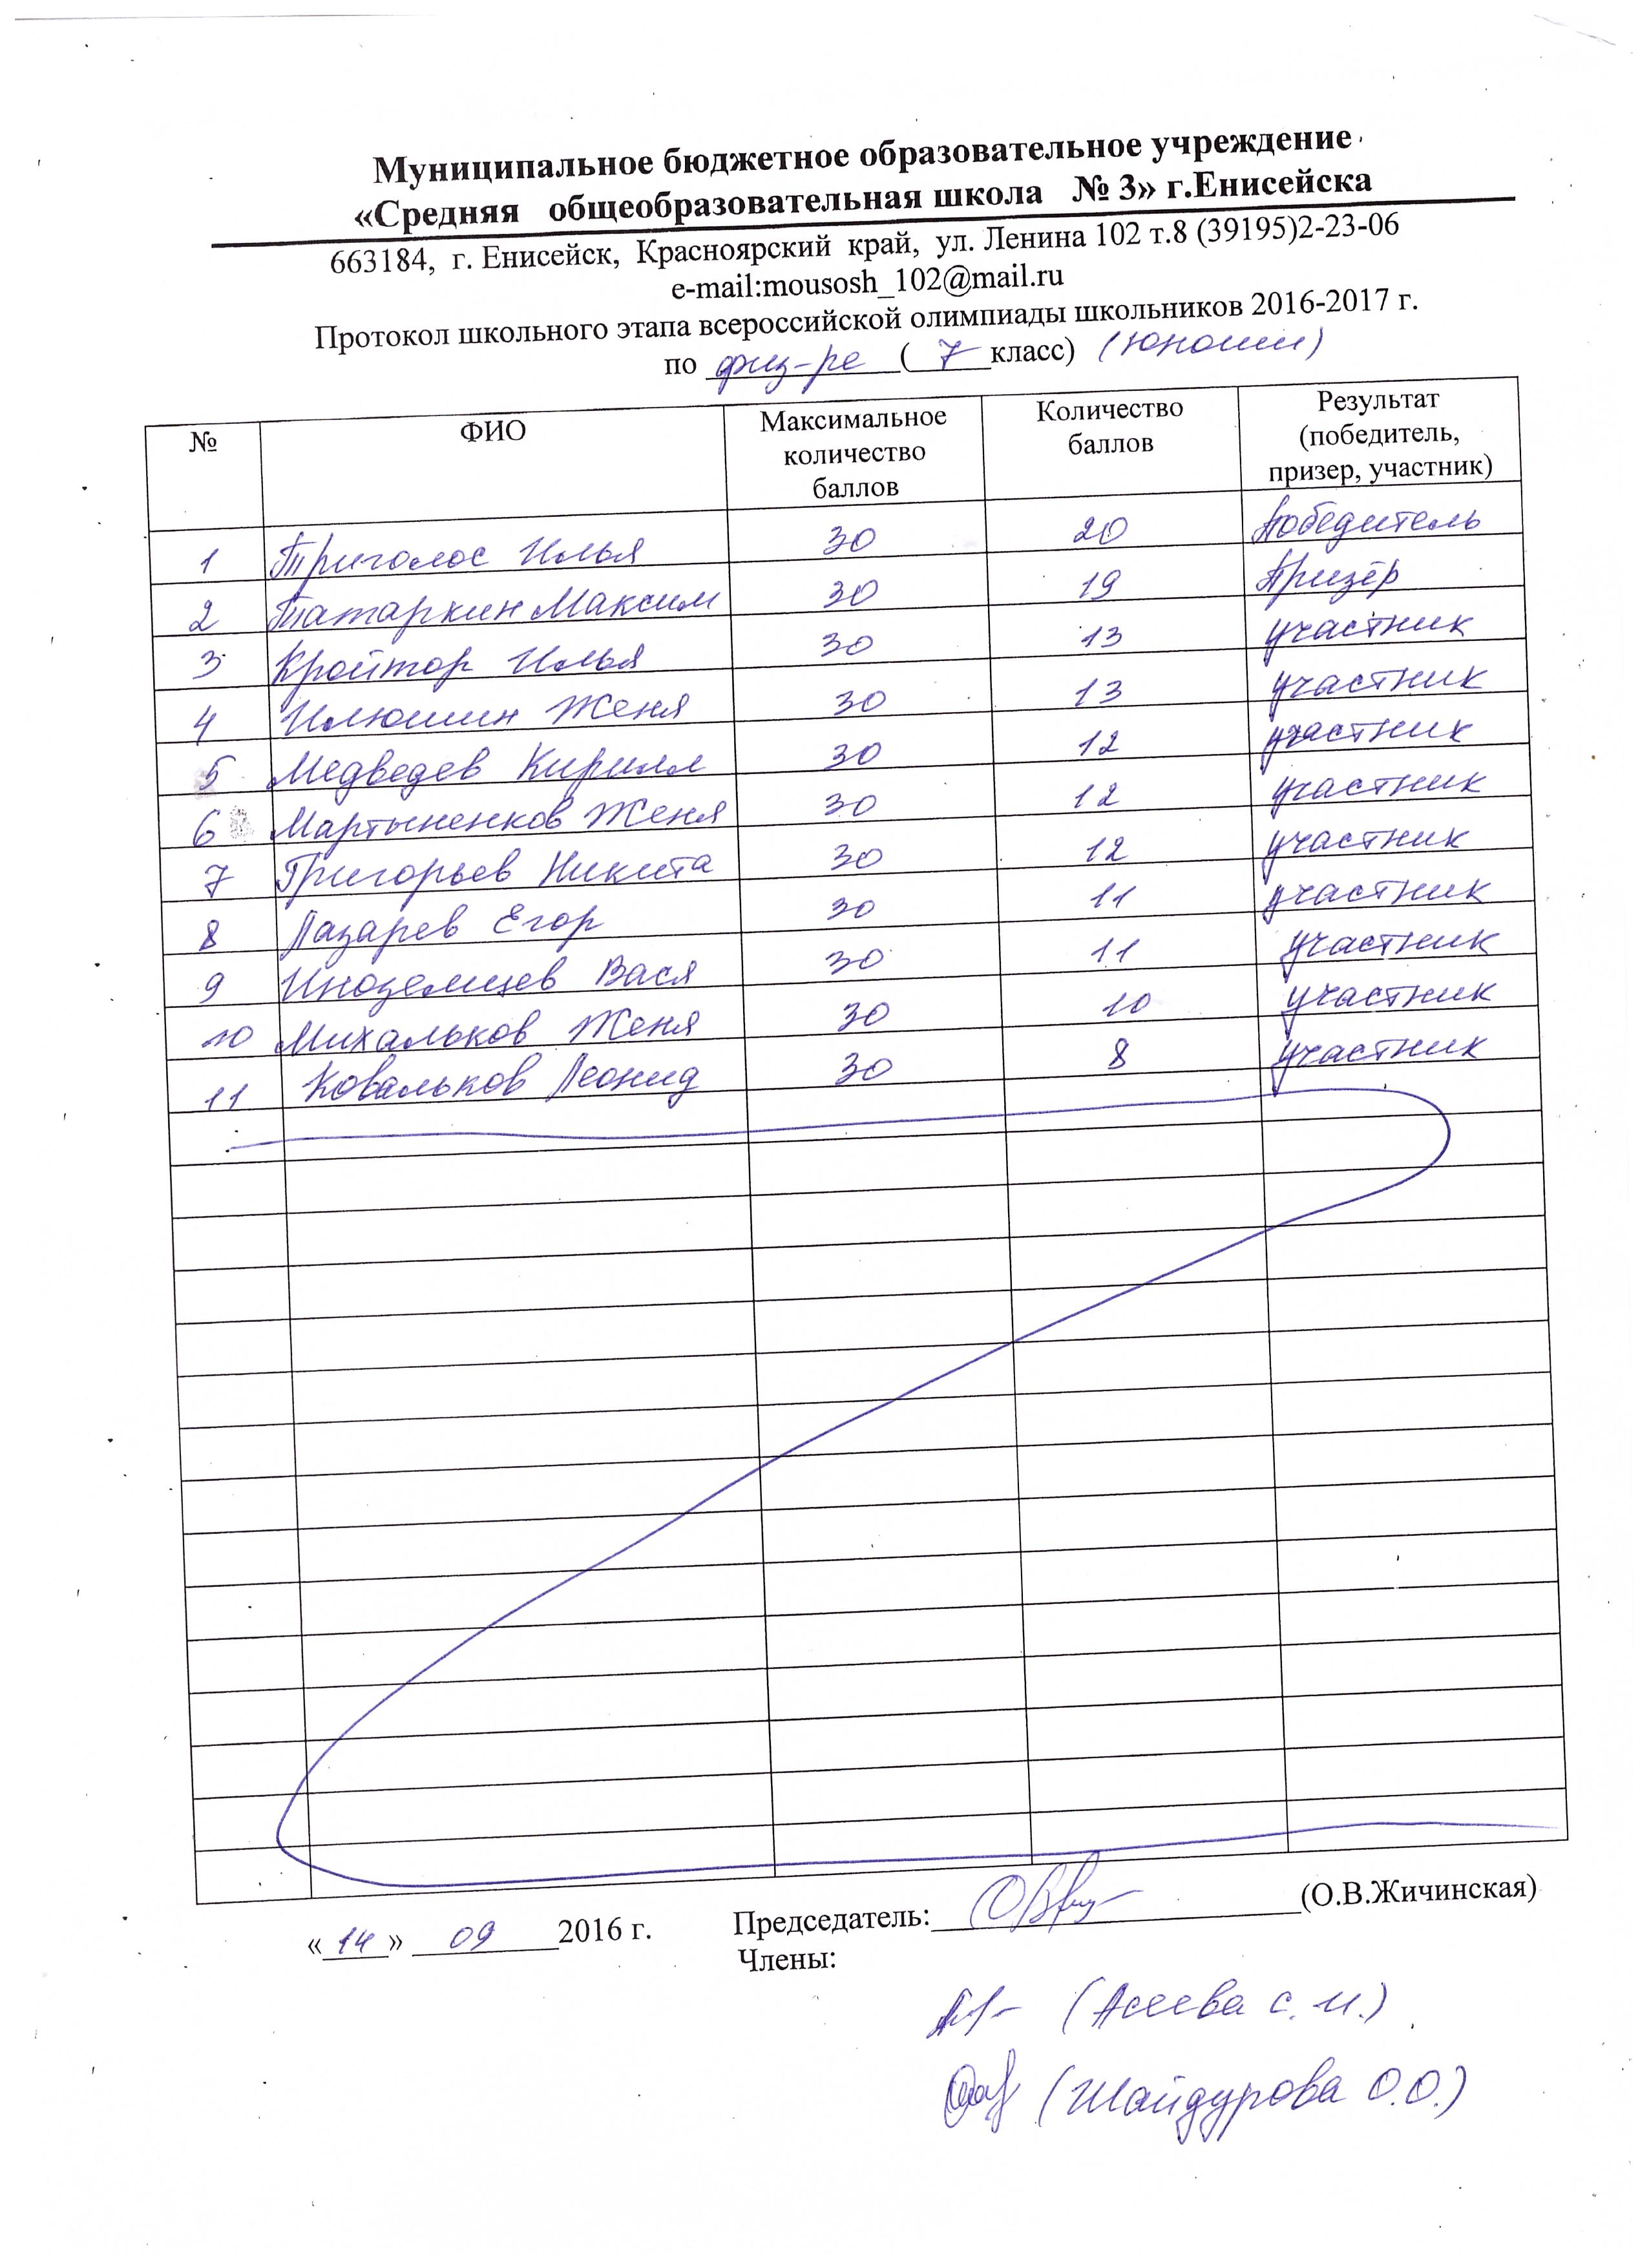 Муниципальное бюджетное образовательное учреждение
«Средняя общеобразовательная школа № 3» г.Енисейска
663184, г. Енисейск, Красноярский край, ул. Ленина 102 т.8 (39195)2-23-06
e-mail:mousosh_102@mail.ru
Протокол школьного этапа всероссийской олимпиады школьников 2016-2017 г.
по физ-ре ( 7 класс) (юноши)
№ ФИО Максимальное количество баллов Количество баллов Результат (победитель, призер, участник)
1 Триголос Илья 30 20 Победитель
2 Татаркин Максим 30 19 Призёр
3 Кройтор Илья 30 13 участник
4 Илюшин Женя 30 13 участник
5 Медведев Кирилл 30 12 участник
6 Мартыненков Женя 30 12 участник
7 Григорьев Никита 30 12 участник
8 Лазарев Егор 30 11 участник
9 Иноземцев Вася 30 11 участник
10 Михальков Женя 30 10 участник
11 Ковальков Леонид 30 8 участник
«14» 09 2016 г. Председатель: (О.В.Жичинская)
Члены:
(Асеева С.И.)
(Шайдурова О.О.)